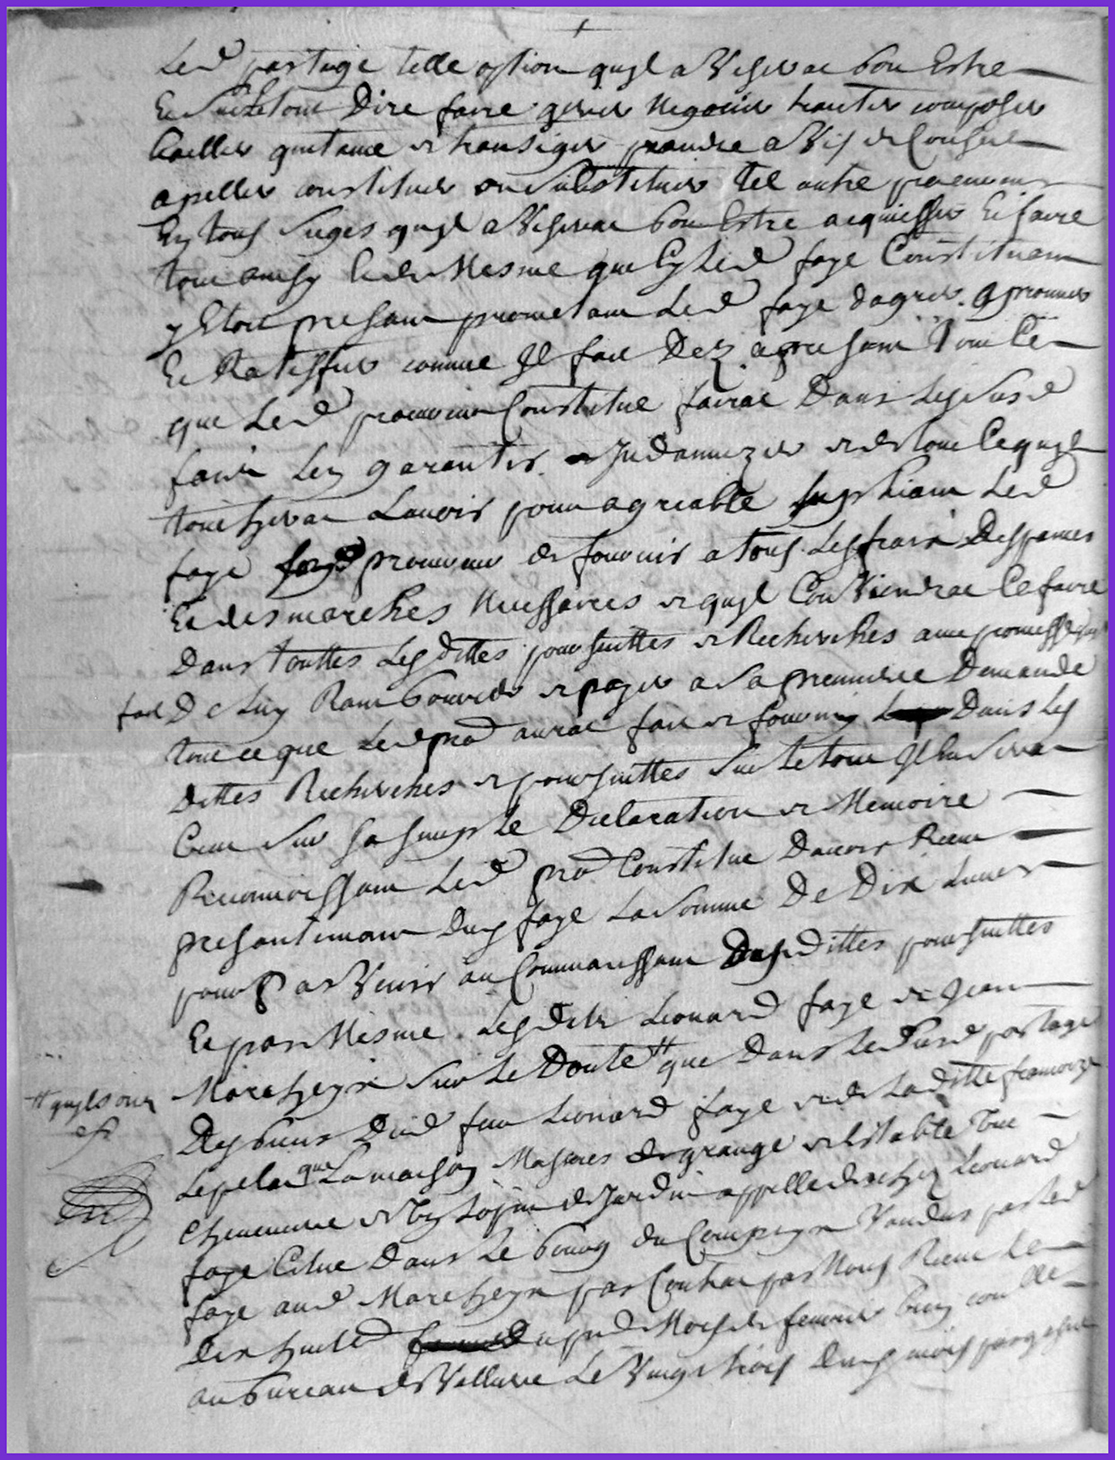 Led partage telle option quyl aViserat bon Estre
Et Surletout Dire faire gerer Negocier traiter composer
bailler quitance et transiger prandre aVis et Conseil
apeller constituer ou Substituer tel autre procureur
En tous Juges quyl aViserat bon Estre acquiesser Et faire
tout ainsy Et de Mesme que Cy Led faye Constituant
y Etoit presant prometant Led faye dagreer aprouver
Et Ratiffier comme Il fait Dez apresant Tout Ce
que Led procureur Constitué fairat Dans Lesusd
fait Len garantir et Indamnizer et de tout Cequyl
touchera Lavoir pour agreable Suppliant Led
faye promeu de fournir a tous Les fraix Despances
Et desmarches Necessaires et quyl ConViendrat Ce faire
Dans touttes Lesdittes poursuittes et Recherches avec promesse
fait De Luy Rambourcer et payer a Sa premiere Demande
tout ce que Led prod aurat fait et fourny Dans Les
dittes Recherches et poursuittes Sur Le tout Il En Serat
Creu Sur Sa Simple Declaration et Memoire
Reconnoissant Led prod Constitué Davoir Receu
presantemant Dud faye La Somme De Dix Livres
pour ParVenir au Commancemant Desdittes poursuittes
Et par Mesme Lesdits Leonard faye et Jean
Marcheyx Sur Le Doute # que Dans Ledusd partage
# quyls ont
Des biens Dud feu Leonard faye et de Laditte francoize
Lepelad que La maison Masures de grange et Estable Tout
Chenneviere et Un Lopin de Jardin appellé de chez Leonard
faye Citué Dans Le bourg du Compeyx Vandus par Led
faye aud Marcheyx par Contrat par Nous Receu Le
dix huict du pnt Mois de fevrier
au bureau de Valliere Le Vingt trois Dud mois par